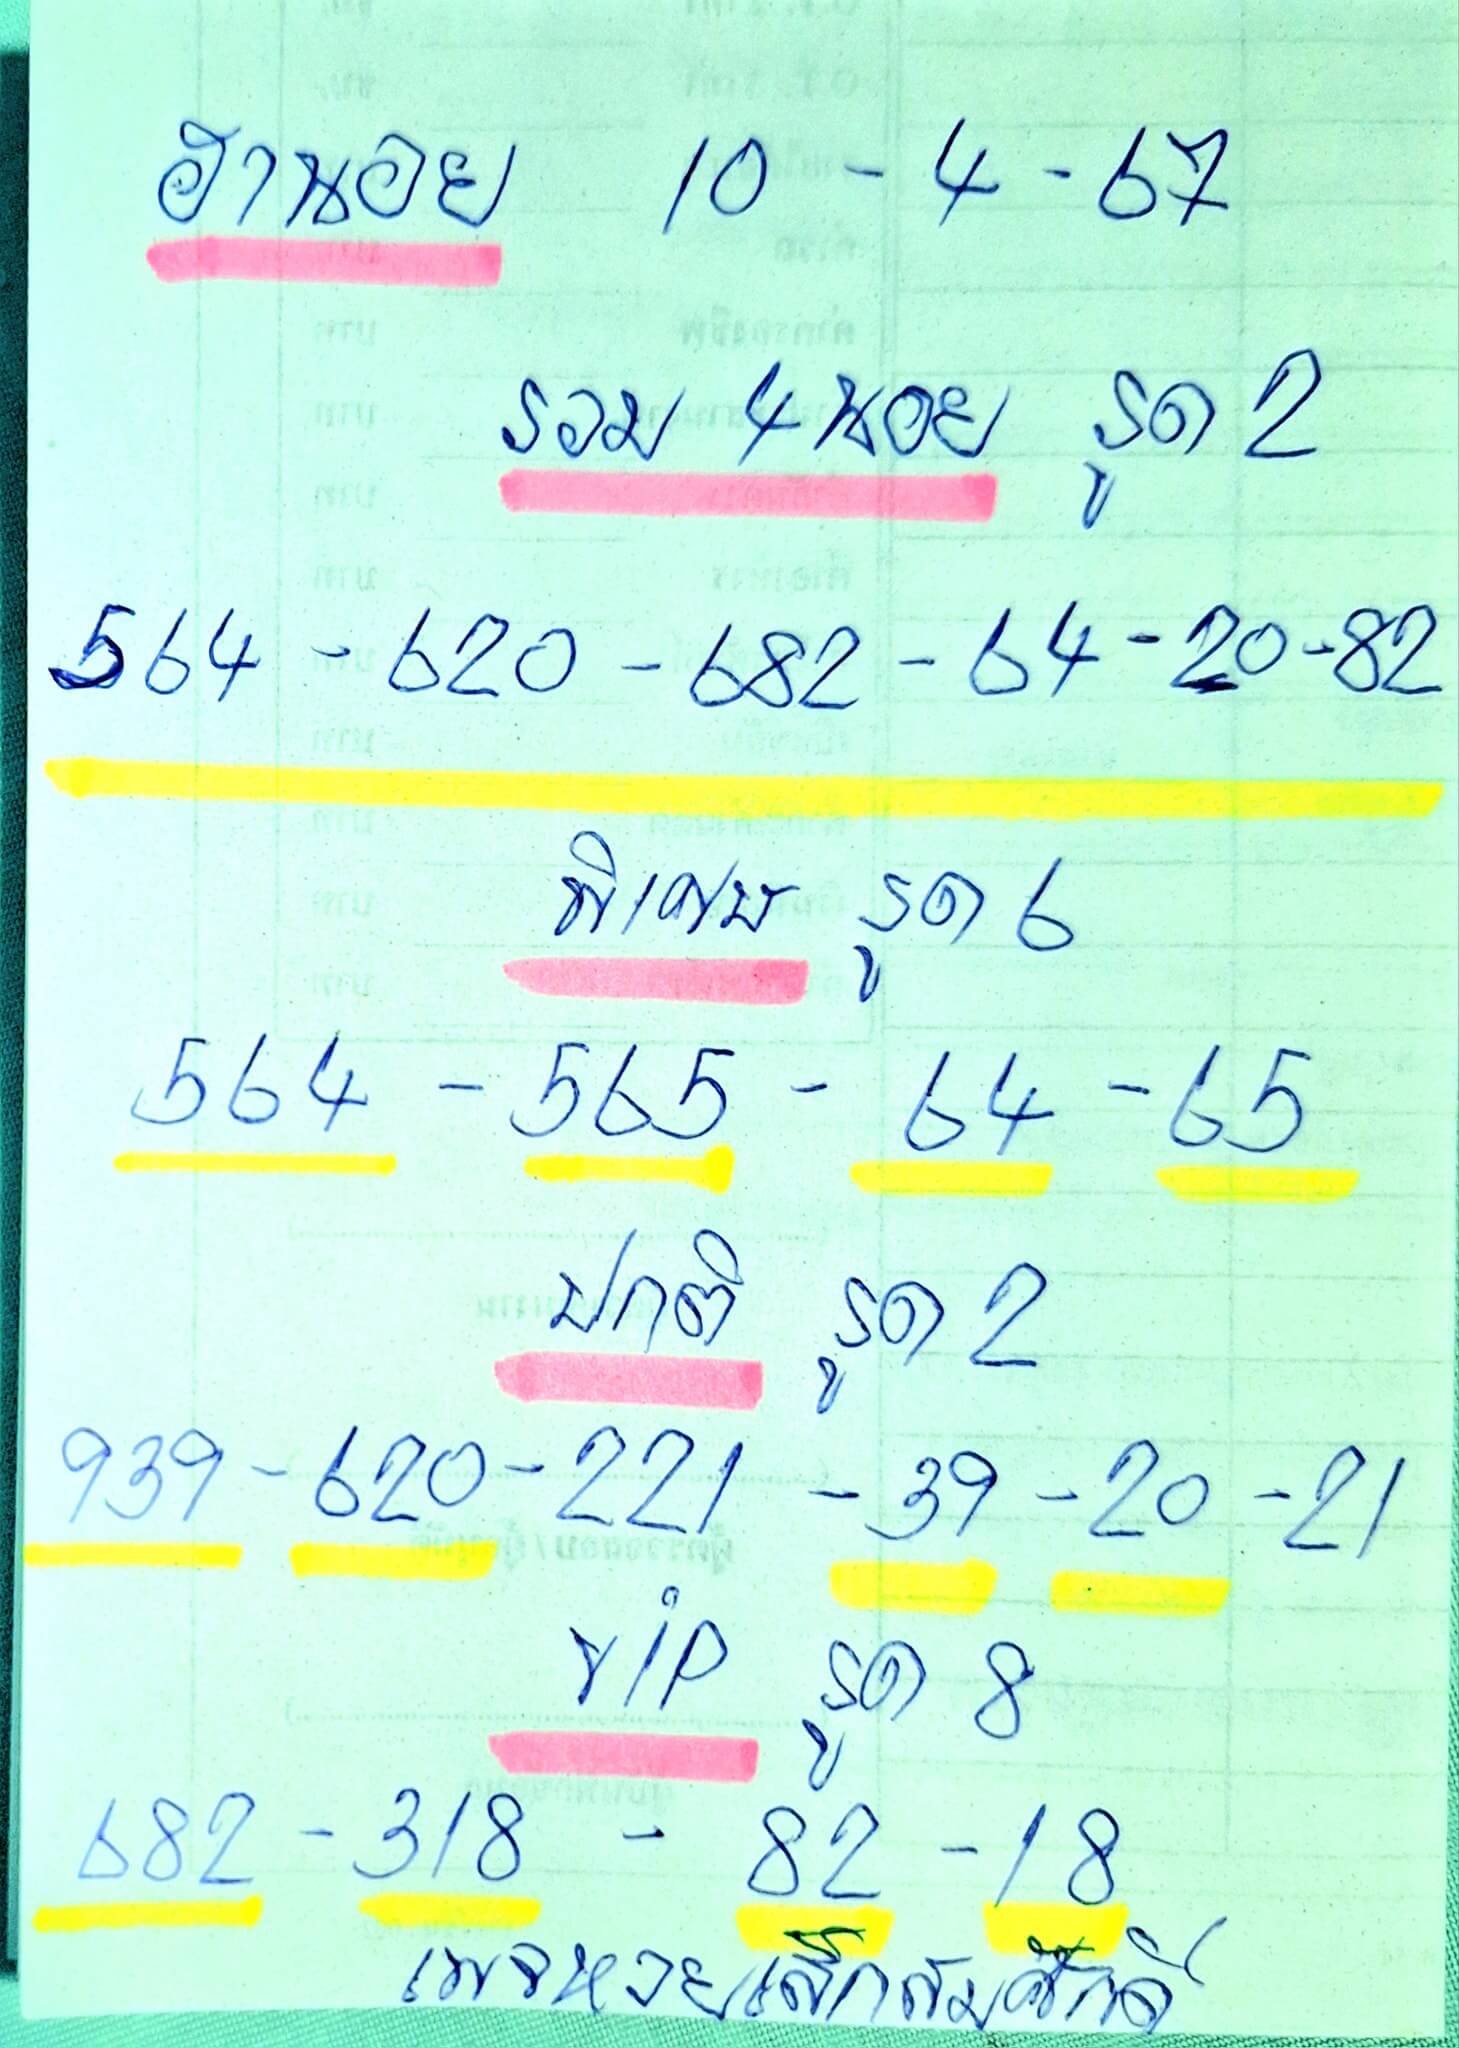 ฮานอย 10 - 4 - 67
รวม 4 นอย รูด 2
564 - 620 - 682 - 64 - 20 - 82
พิเศษ รูด 6
564 - 565 - 64 - 65
ปกติ รูด 2
939 - 620 - 221 - 39 - 20 - 21
vip รูด 8
682 - 318 - 82 - 18
เพจหวยเล็กสมศักดิ์